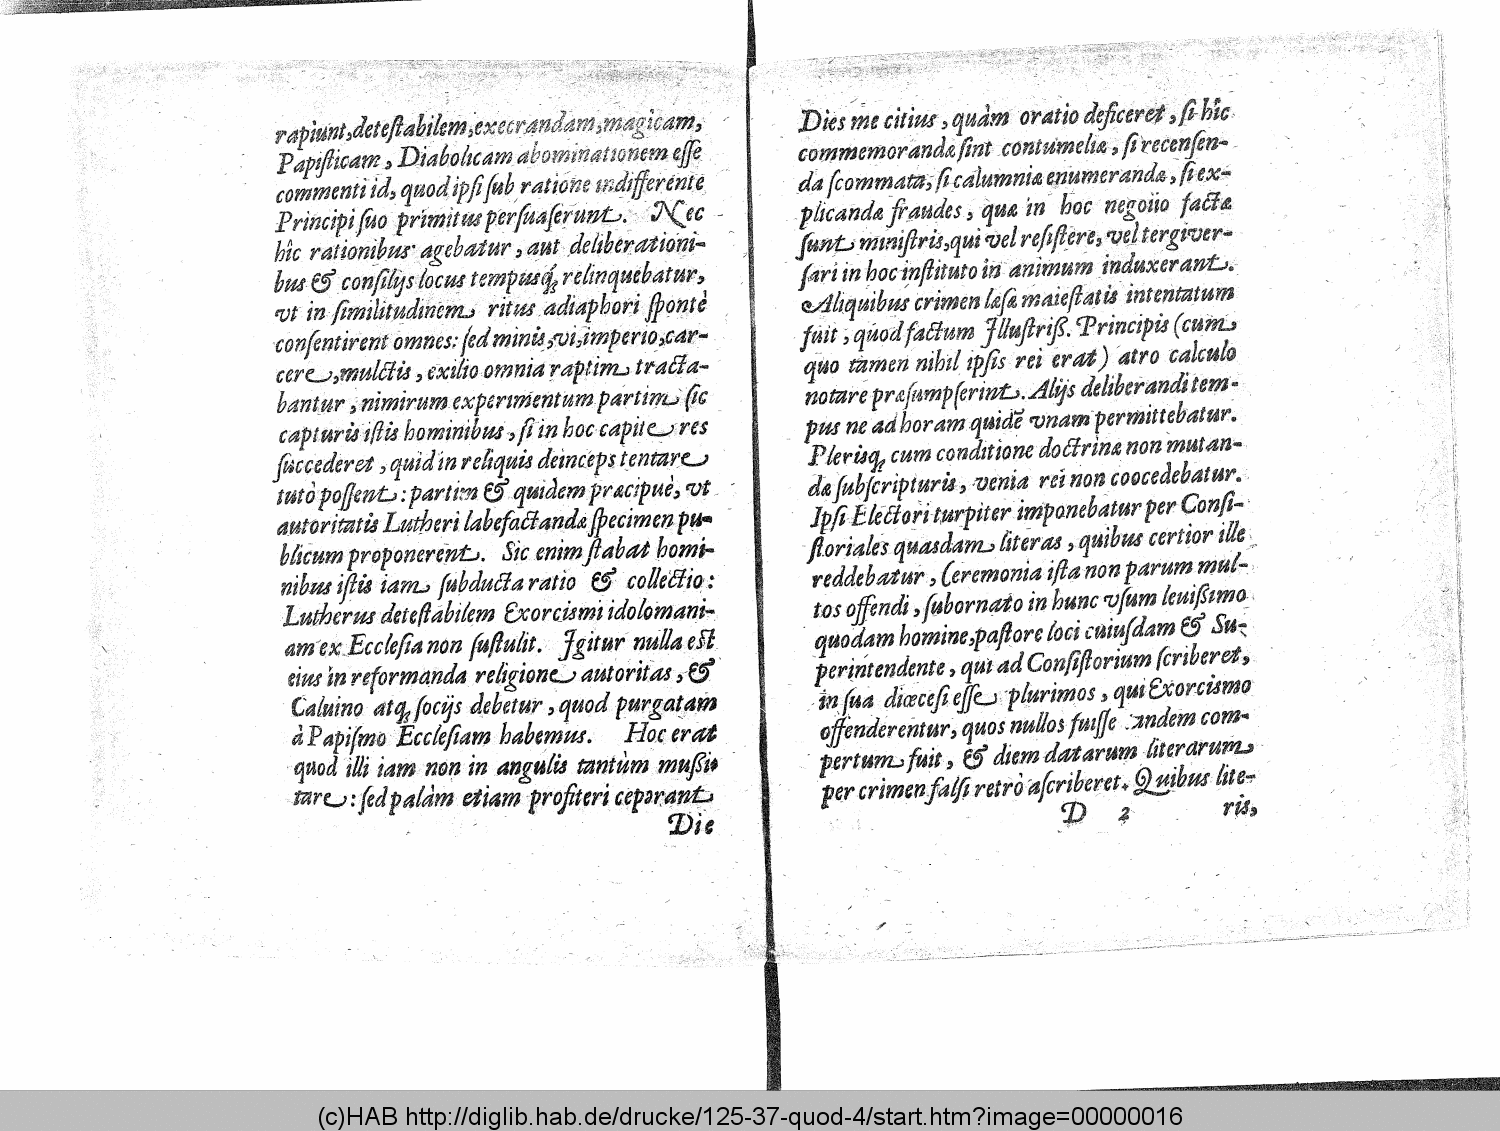 rapiunt,deteſtabilem,execrandam,magicam,
Papiſticam, Diabolicam abominationem eſſe
commenti id, quod ipſi ſub ratione indifferente
Principi ſuo primitus perſuaſerunt. Nec
hîc rationibus agebatur, aut deliberationi-
bus & conſilijs locus tempusq́; relinquebatur,
vt in ſimilitudinem ritus adiaphori ſpontè
conſentirent omnes: ſed minis,vi,imperio,car-
cere,mulctis, exilio omnia raptim tracta-
bantur, nimirum experimentum partim ſic
capturis iſtis hominibus, ſi in hoc capite res
ſuccederet, quid in reliquis deinceps tentare
tutò poſſent: partim & quidem præcipuè, vt
autoritatis Lutheri labefactandæ ſpecimen pu-
blicum proponerent. Sic enim ſtabat homi-
nibus iſtis iam ſubducta ratio & collectio:
Lutherus deteſtabilem Exorcismi idolomani-
am ex Eccleſia non ſuſtulit. Igitur nulla eſt
eius in reformanda religione autoritas, &
Caluino atq; ſocijs debetur, quod purgatam
à Papiſmo Eccleſiam habemus. Hoc erat
quod illi iam non in angulis tantùm mußi-
tare: ſed palàm etiam profiteri ceperant
Die
Dies me citius, quàm oratio deficeret, ſi hîc
commemorandæ ſint contumeliæ, ſi recenſen-
da ſcommata, ſi calumniæ enumerandæ, ſi ex-
plicandæ fraudes, quæ in hoc negotio factæ
ſunt miniſtris,qui vel reſiſtere, vel tergiver-
ſari in hoc inſtituto in animum induxerant.
Aliquibus crimen læſæ maieſtatis intentatum
fuit, quod factum Illuſtriß. Principis (cum
quo tamen nihil ipſis rei erat) atro calculo
notare præſumpſerint. Alijs deliberandi tem-
pus ne ad horam quidẽ vnam permittebatur.
Plerisq; cum conditione doctrinæ non mutan-
dæ ſubſcripturis, venia rei non coocedebatur.
Ipſi Electori turpiter imponebatur per Conſi-
ſtoriales quasdam literas, quibus certior ille
reddebatur, Ceremonia iſta non parum mul-
tos offendi, ſubornato in hunc vſum leuißimo
quodam homine,paſtore loci cuiuſdam & Su-
perintendente, qui ad Conſiſtorium ſcriberet,
in ſua diœceſi eſſe plurimos, qui Exorcismo
offenderentur, quos nullos fuiſſe tandem com-
pertum fuit, & diem datarum literarum
per crimen falſi retrò aſcriberet. Quibus lite-
D 2 ris,
(c)HAB http://diglib.hab.de/drucke/125-37-quod-4/start.htm?image=00000016